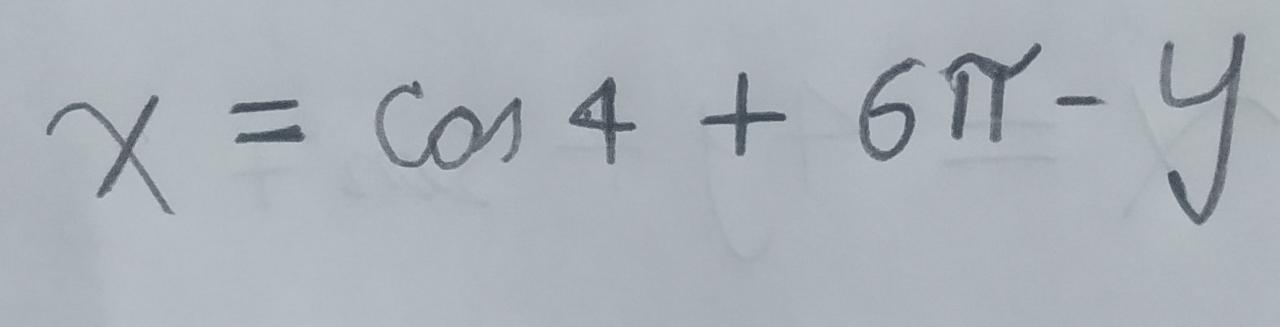 x = cos 4 + 6π - y